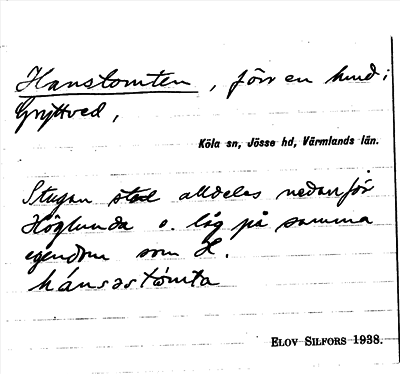 Hanstomten, förr en hmd i
Gryttved,
Köla sn, Jösse hd, Värmlands län.
Stugan stod alldeles nedanför
Höglunda o. låg på samma
egendom som H.
hánsastómta
ELOV SILFORS 1938.